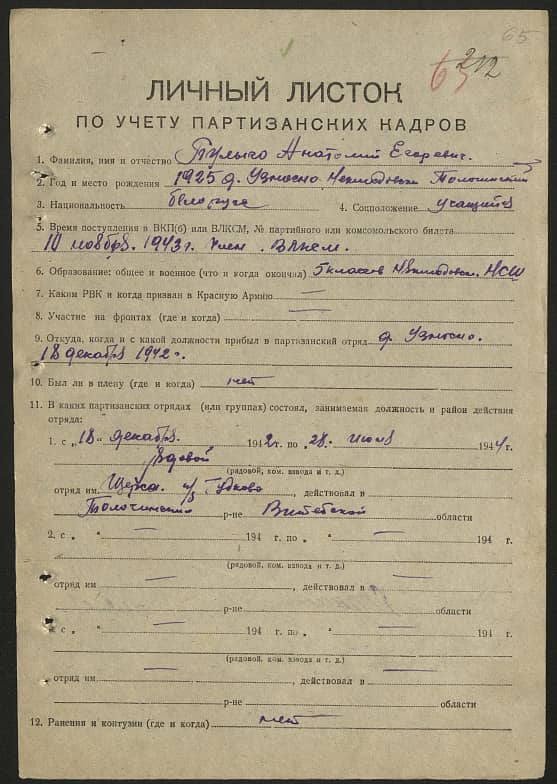 65
63 212
ЛИЧНЫЙ ЛИСТОК
ПО УЧЕТУ ПАРТИЗАНСКИХ КАДРОВ
1. Фамилия, имя и отчество Анатолий Егорович.
2. Год и место рождения 1925 д. Узносно Толочинский
3. Национальность белорус 4. Соцположение учащийся
5. Время поступления в ВКП(б) или ВЛКСМ, № партийного или комсомольского билета
10 ноября 1943 г. член ВЛКСМ.
6. Образование: общее и военное (что и когда окончил) 5 классов НСШ
7. Каким РВК и когда призван в Красную Армию —
8. Участие на фронтах (где и когда) —
9. Откуда, когда и с какой должности прибыл в партизанский отряд д. Узносно.
18 декабря 1942 г.
10. Был ли в плену (где и когда) нет
11. В каких партизанских отрядах (или группах) состоял, занимаемая должность и район действия
отряда:
1. с „18" декабря 1942 г. по „28" июня 1944 г.
рядовой
(рядовой, ком. взвода и т. д.)
отряд им. п/б Гудкова, действовал в
Толочинский р-не Витебской области
2. с „ — " 194 г. по „ — " 194 г.
(рядовой, ком. взвода и т. д.)
отряд им —, действовал в —
р-не — области
4. с „ — " 194 г. по „ — " 194 г.
(рядовой, ком. взвода и т. д.)
отряд им. —, действовал в —
р-не — области
12. Ранения и контузии (где и когда) нет